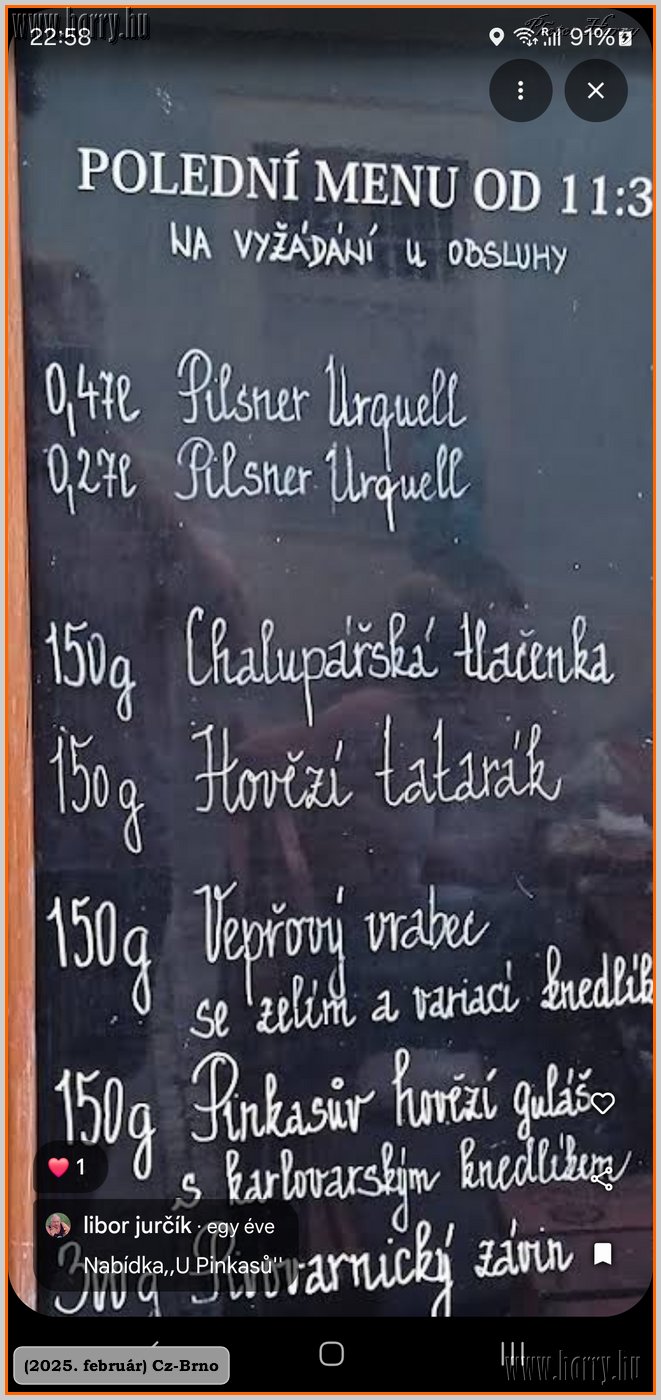 www.horry.hu
22:58
R
91%
POLEDNÍ MENU OD 11:3
NA VYŽÁDÁNÍ U OBSLUHY
0,47l Pilsner Urquell
0,27l Pilsner Urquell
150g Chalupářská tlačenka
150g Hovězí tatarák
150g Vepřový vrabec
se zelím a variací knedlík
150g Pinkasův hovězí guláš
s karlovarským knedlíkem
1
libor jurčík · egy éve
Nabídka,,U Pinkasů"
300g Pivovarnický závin
(2025. február) Cz-Brno
www.horry.hu